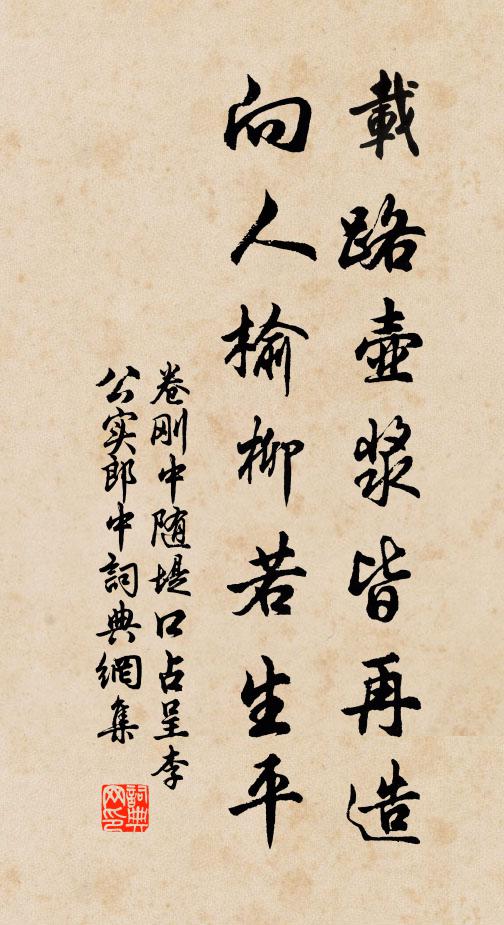 載路壺漿皆再造
向人榆柳若生平
卷刚中随堤口占呈李
公实郎中詞典網集
詞典网印